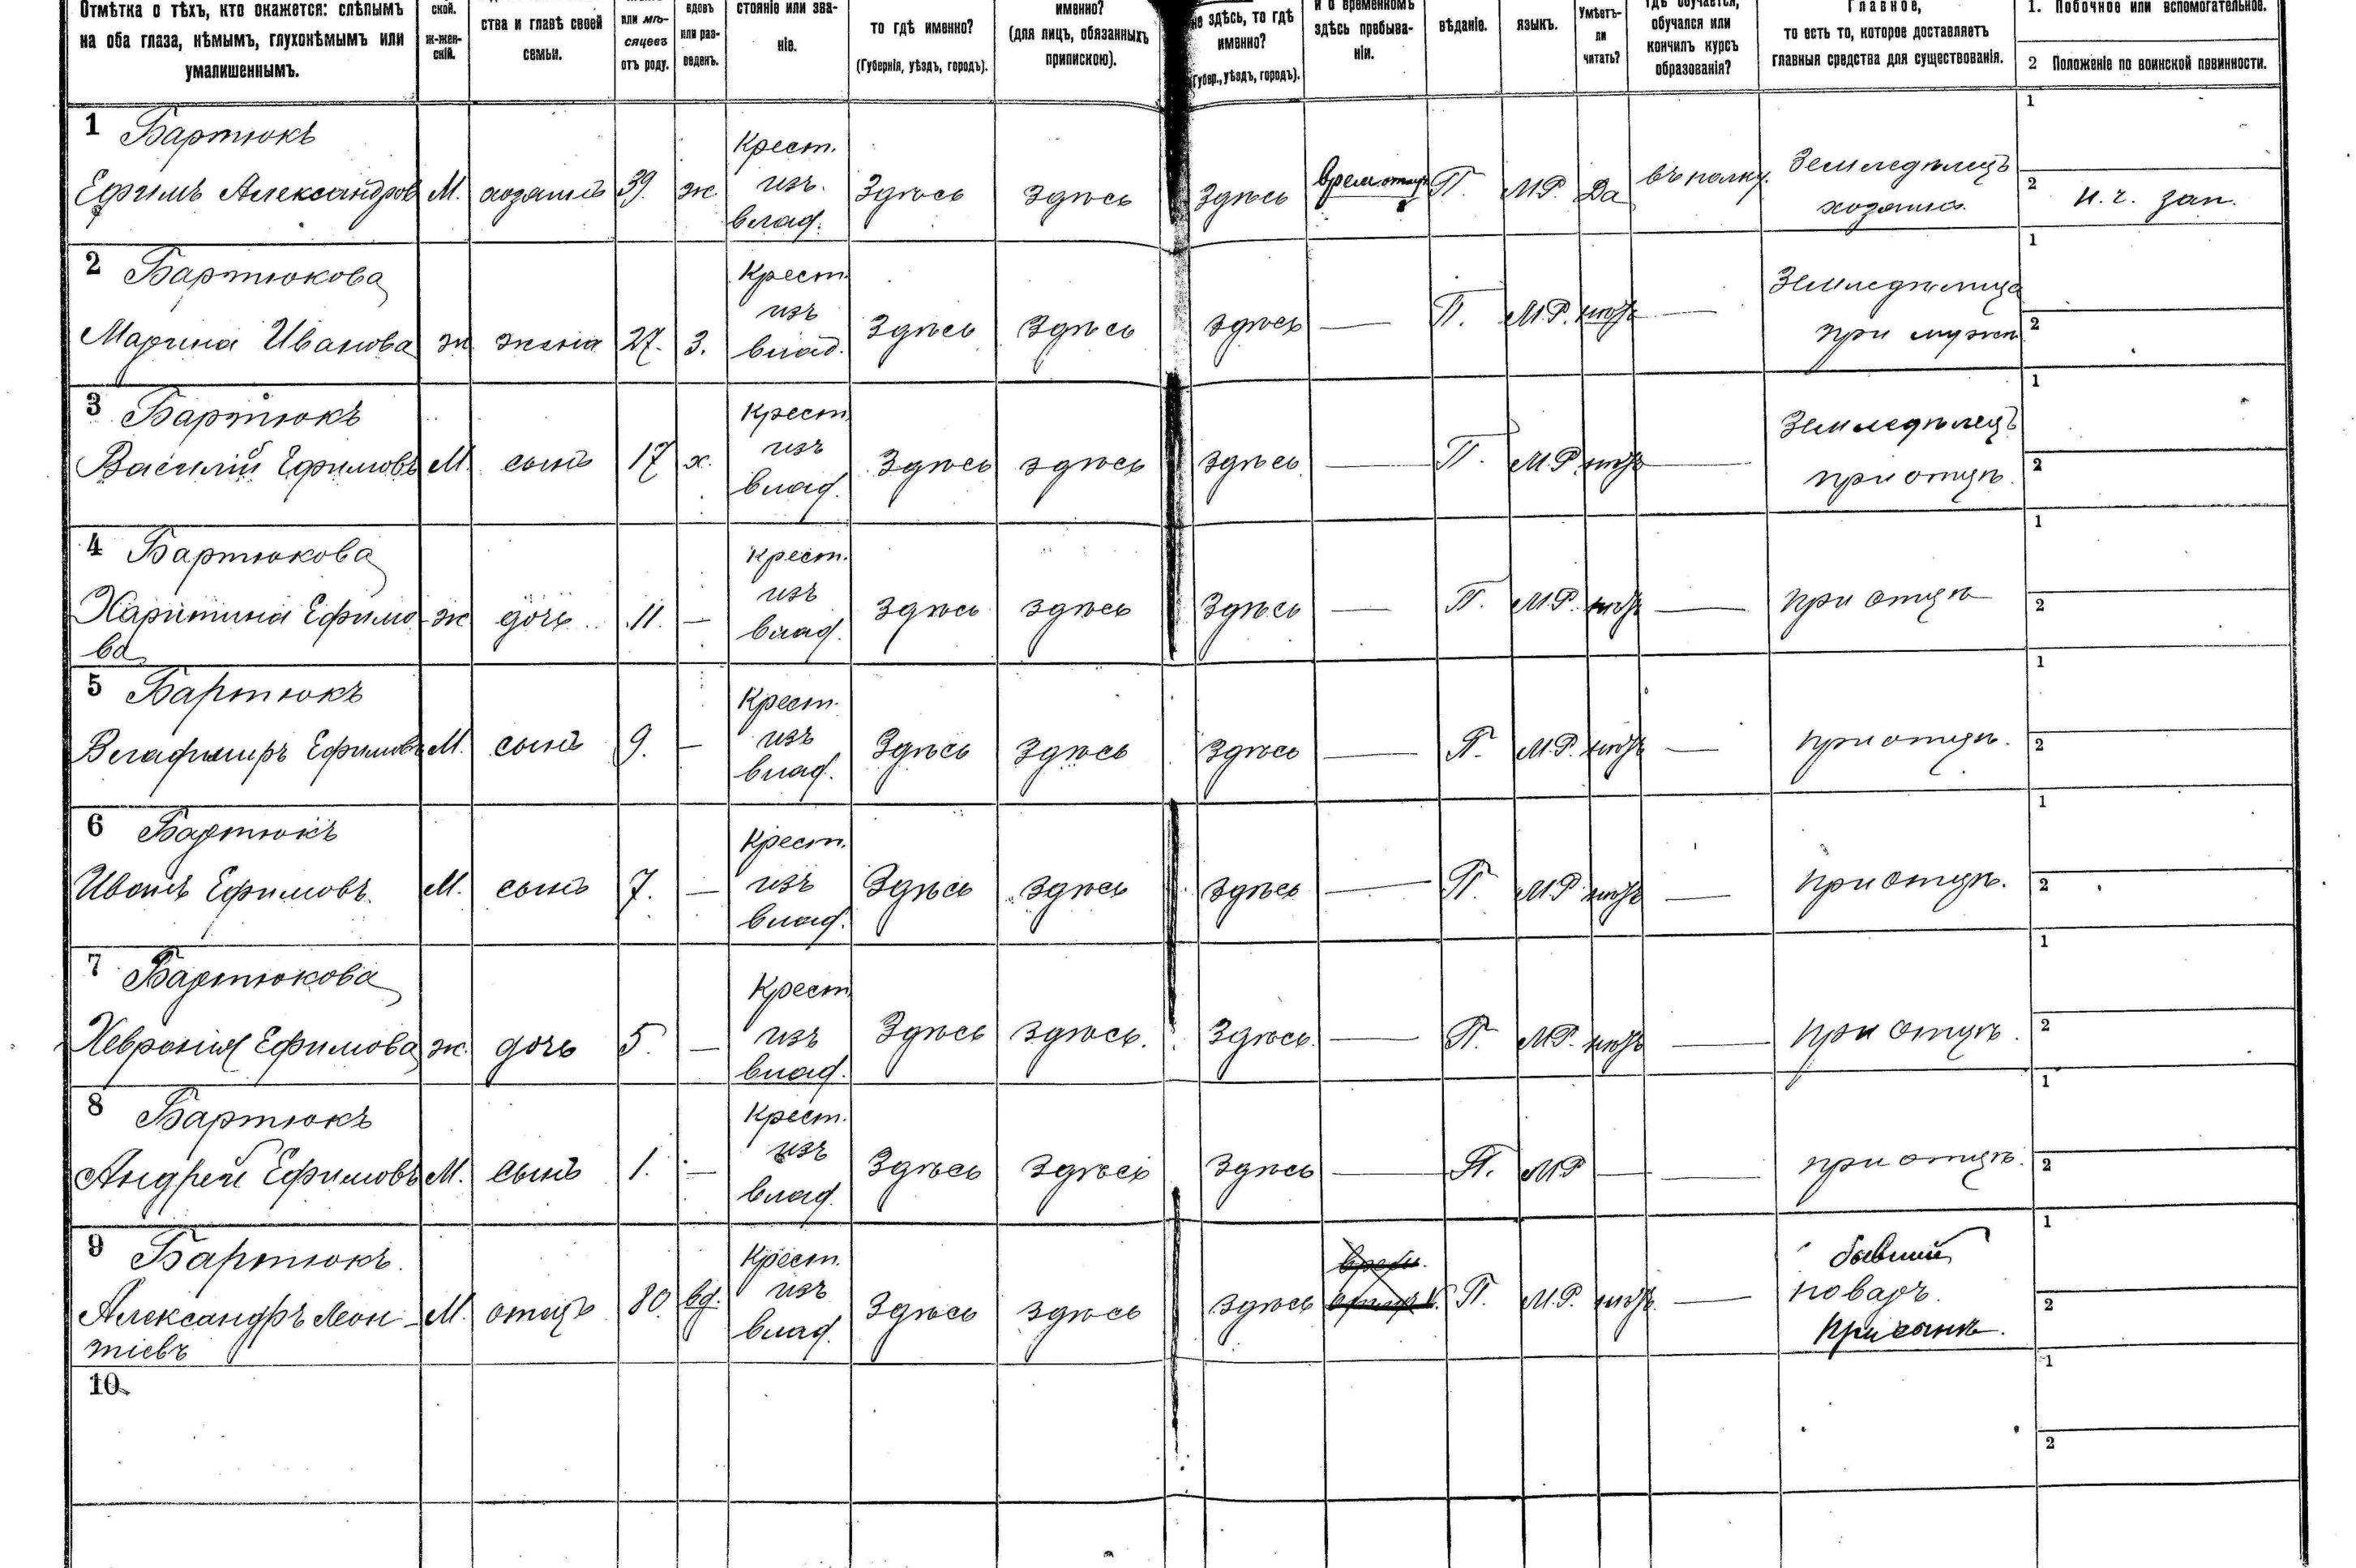 Отмѣтка о тѣхъ, кто окажется: слѣпымъ
на оба глаза, нѣмымъ, глухонѣмымъ или
умалишеннымъ.
ской.
ж-жен-
скій.
ства и главѣ своей
семьи.
или мѣ-
сяцевъ
отъ роду.
вдовъ
или раз-
веденъ.
стояніе или зва-
ніе.
то гдѣ именно?
(Губернія, уѣздъ, городъ).
именно?
(для лицъ, обязанныхъ
припискою).
не здѣсь, то гдѣ
именно?
(Губер., уѣздъ, городъ).
и о временномъ
здѣсь пребыва-
ніи.
вѣданіе.
языкъ.
Умѣетъ-
ли
читать?
гдѣ обучается,
обучался или
кончилъ курсъ
образованія?
Главное,
то есть то, которое доставляетъ
главныя средства для существованія.
1. Побочное или вспомогательное.
2 Положеніе по воинской повинности.
1 Бартюкъ
Ефимъ Александровъ М. хозяинъ 39. ж Крест. изъ. влад. Здѣсь здѣсь здѣсь врем. отлуч. П. М.Р. Да въ полку. Земледѣлецъ хозяинъ. 1 2 н. ч. зап.
2 Бартюкова
Марина Иванова ж жена 27. З. Крест. изъ влад. Здѣсь здѣсь здѣсь — П. М.Р. нѣтъ — Земледѣлица при мужѣ 1 2
3 Бартюкъ
Василій Ефимовъ М. сынъ 17 х. Крест. изъ влад. Здѣсь здѣсь здѣсь — П. М.Р. нѣтъ — Земледѣлецъ при отцѣ. 1 2
4 Бартюкова
Харитина Ефимо- ж дочь 11. — Крест. изъ влад. Здѣсь здѣсь здѣсь — П. М.Р. нѣтъ — при отцѣ 1 2
ва
5 Бартюкъ
Владимиръ Ефимовъ М. сынъ 9. — Крест. изъ влад. Здѣсь здѣсь здѣсь — П. М.Р. нѣтъ — при отцѣ. 1 2
6 Бартюкъ
Иванъ Ефимовъ. М. сынъ 7. — Крест. изъ влад. Здѣсь здѣсь здѣсь — П. М.Р нѣтъ — при отцѣ. 1 2
7 Бартюкова
Хевронія Ефимова ж. дочь 5. — Крест. изъ влад. Здѣсь здѣсь. Здѣсь. — П. М.Р. нѣтъ — при отцѣ. 1 2
8 Бартюкъ
Андрей Ефимовъ М. сынъ 1. — Крест. изъ влад. Здѣсь здѣсь здѣсь — П. М.Р — — при отцѣ. 1 2
9 Бартюкъ.
Александръ Леон- М. отецъ 80. вд. Крест. изъ влад. Здѣсь здѣсь здѣсь П. М.Р. нѣтъ. — бывшій поваръ. При сынѣ. 1 2
тіевъ
10.
1
2